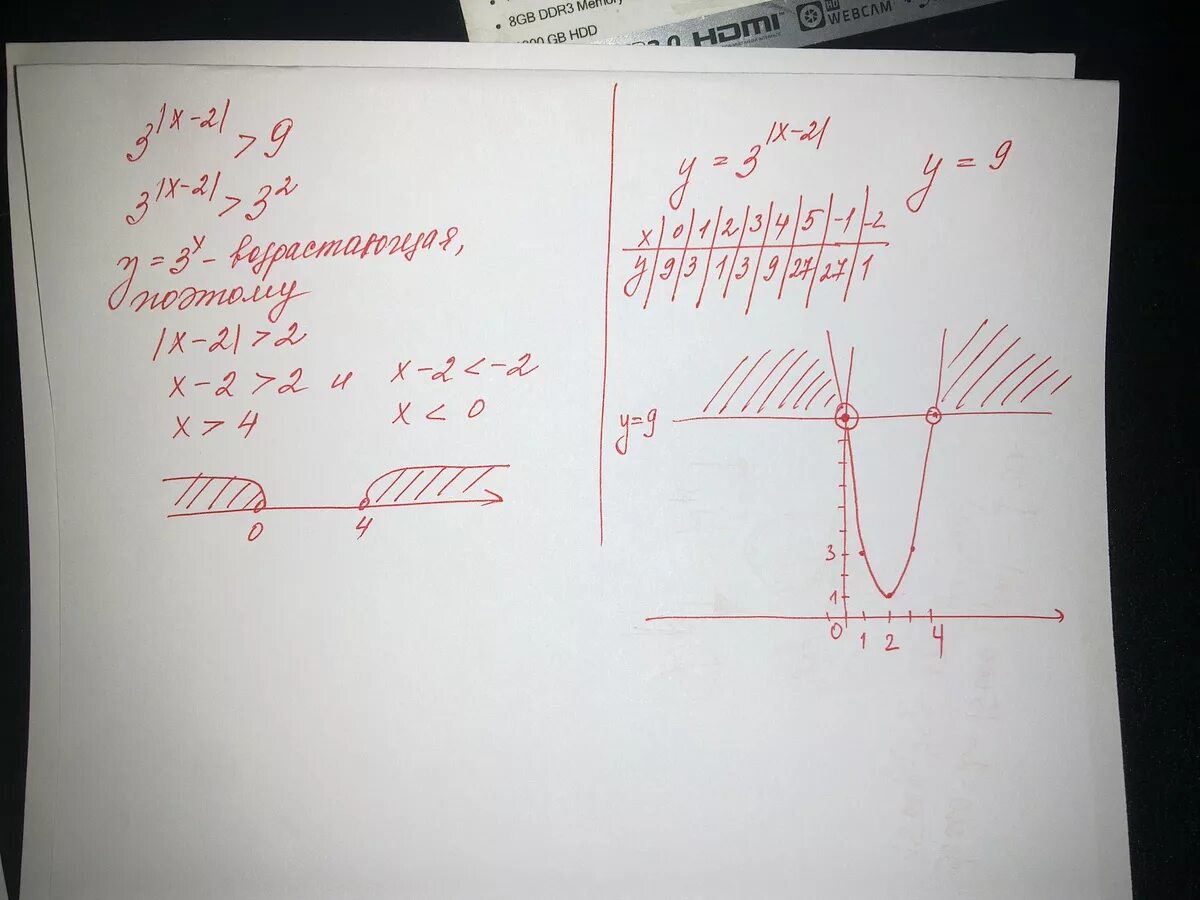 • 8GB DDR3 Memory
GB HDD
HDMI
HD WEBCAM
3^|x-2| > 9
3^|x-2| > 3^2
y = 3^x - возрастающая,
поэтому
|x-2| > 2
x-2 > 2 и x-2 < -2
x > 4 x < 0
0 4
y = 3^|x-2| y = 9
x | 0 | 1 | 2 | 3 | 4 | 5 | -1 | -2
y | 9 | 3 | 1 | 3 | 9 | 27 | 27 | 1
y=9
3
1
0 1 2 4